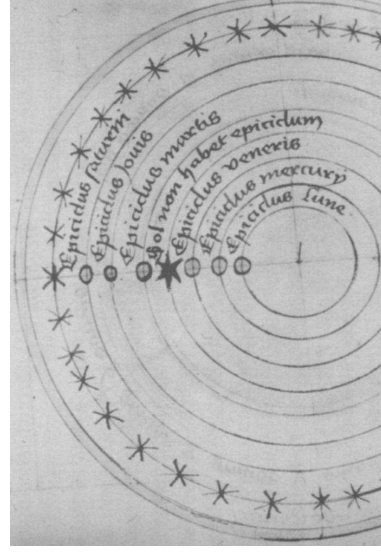 Epiciclus saturni
Epiciclus Jouis
Epiciclus martis
Sol non habet epiciclum
Epiciclus veneris
Epiciclus mercury
Epiciclus lune